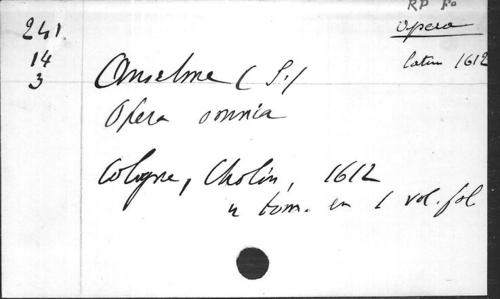 RP Fo
241.
14
3
Opera
latin 1612
Anselme (S.)
Opera omnia
Cologne, Cholin, 1612
4 tom. en 1 vol. fol